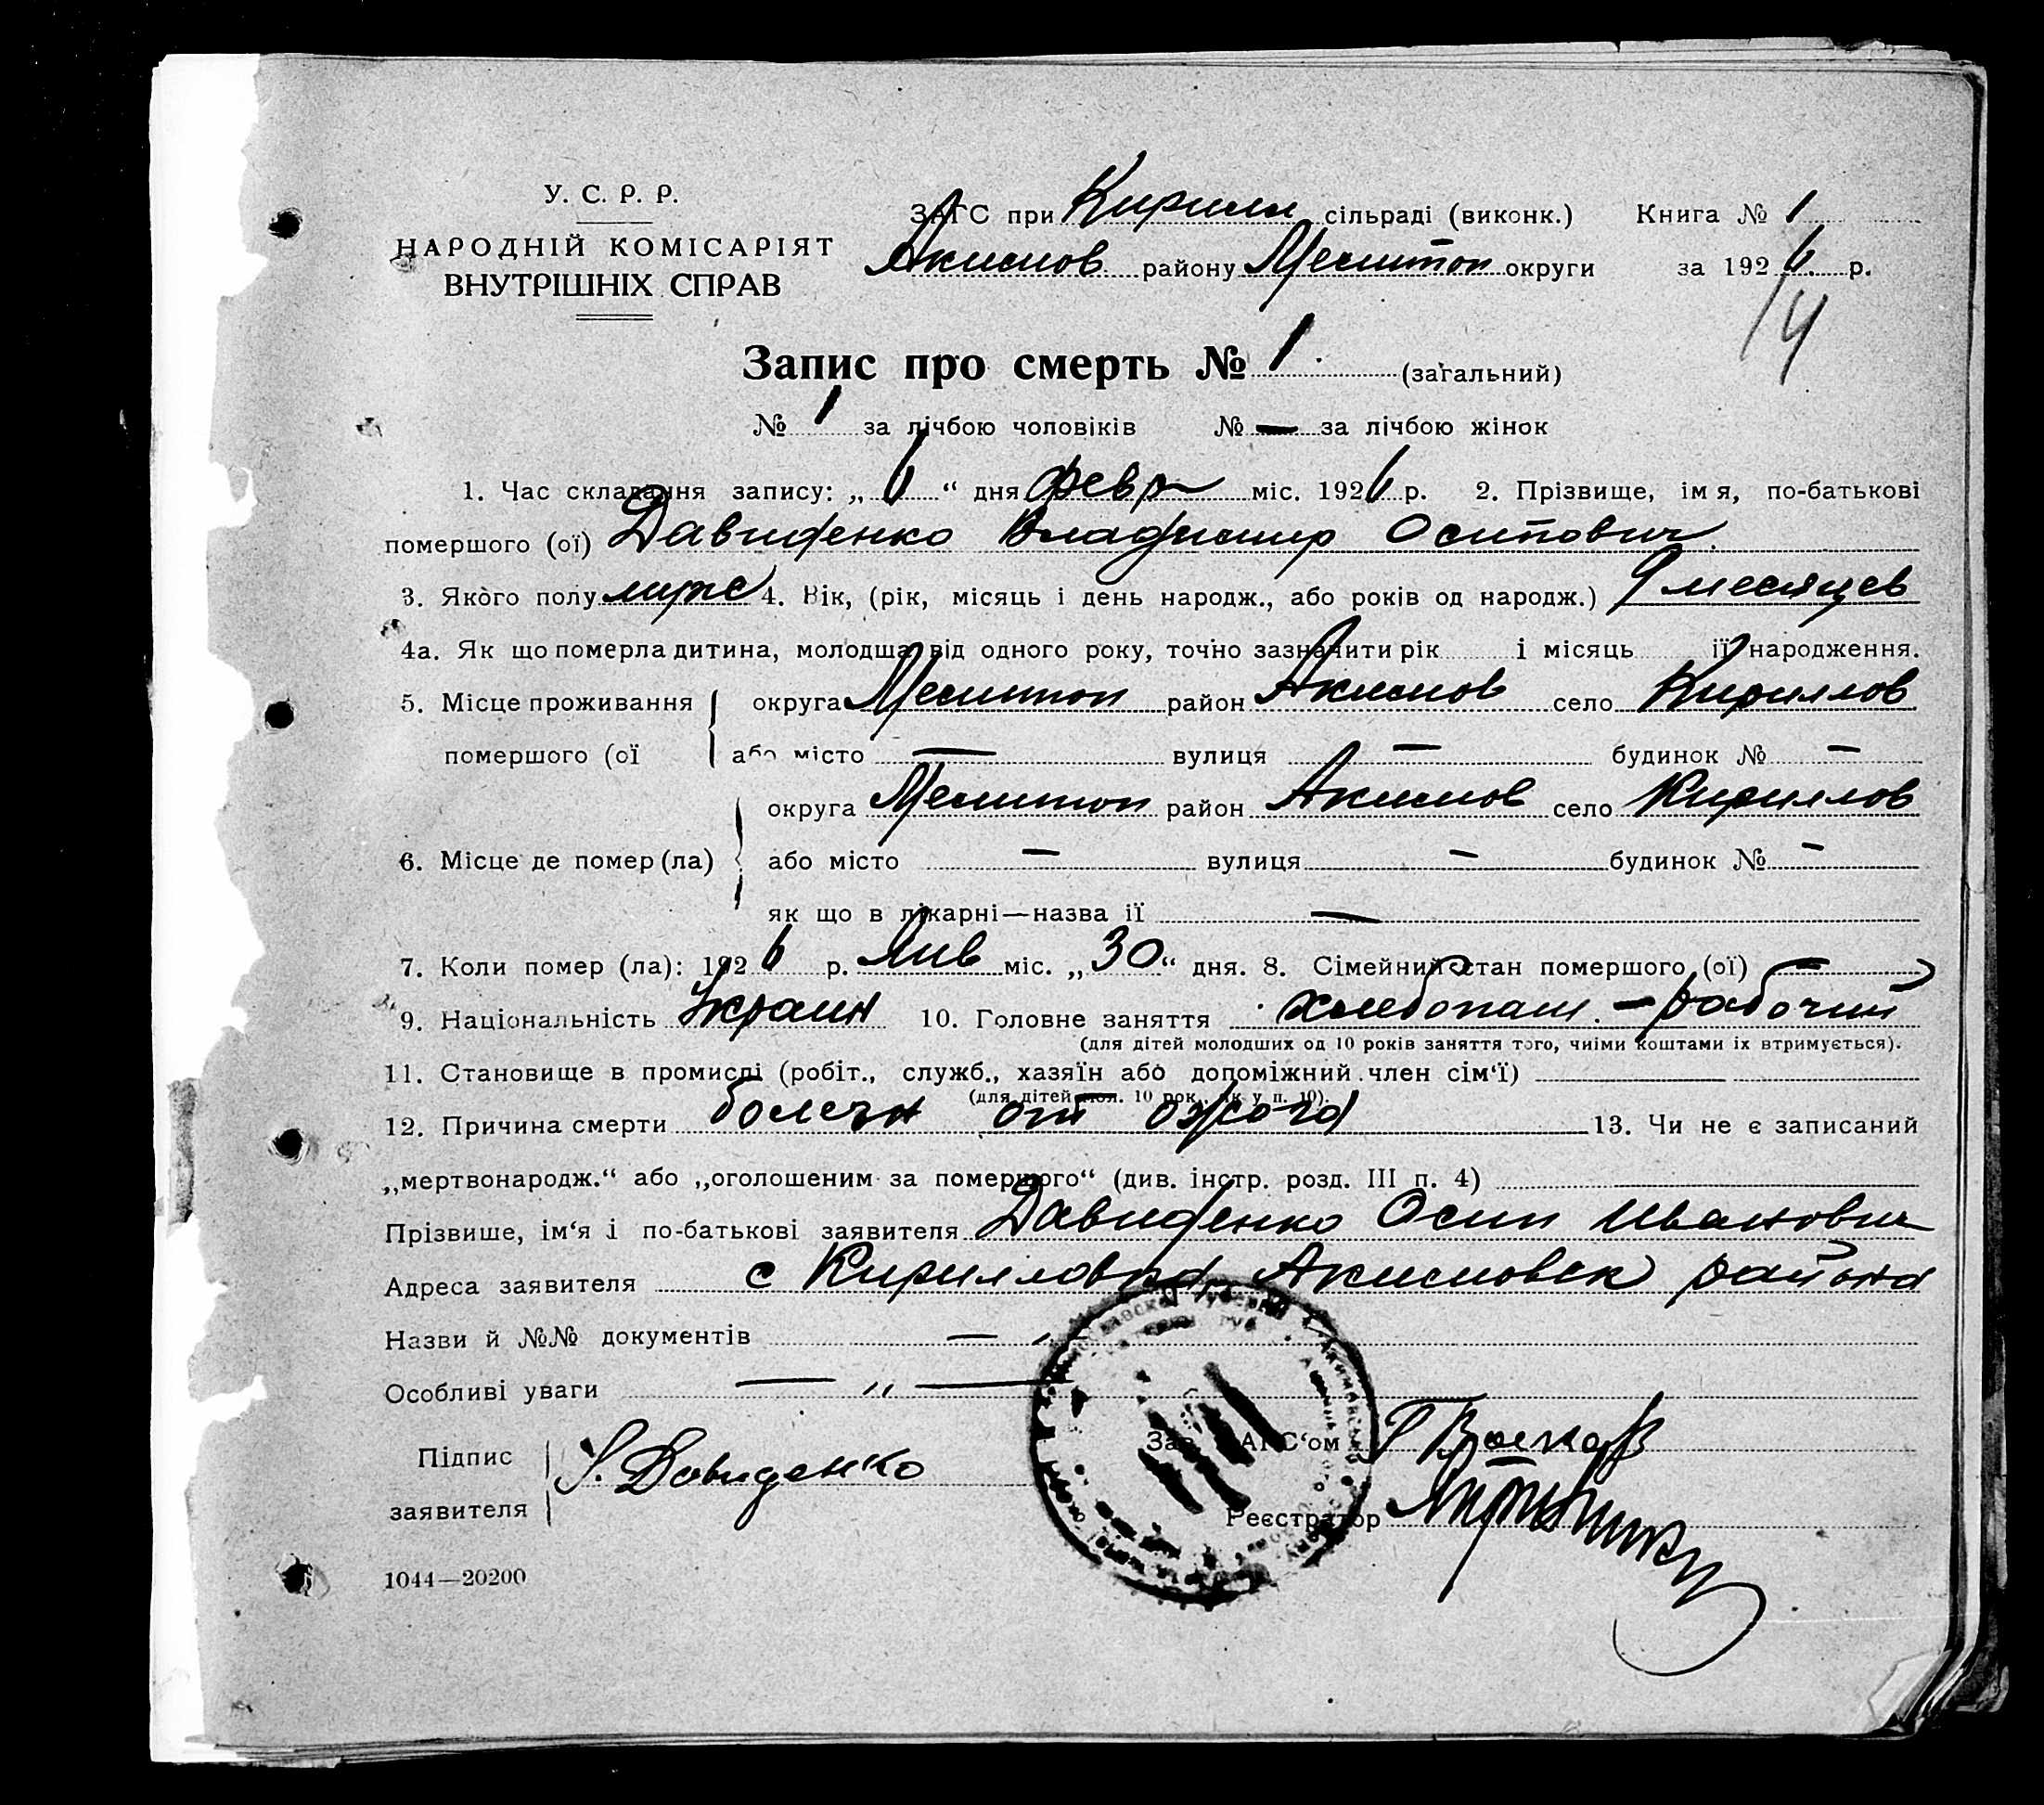 У. С. Р. Р.
НАРОДНІЙ КОМІСАРІЯТ
ВНУТРІШНІХ СПРАВ
ЗАГС при Кирилл сільраді (виконк.) Книга № 1
Акимов району Мелитоп округи за 1926 р.
14
Запис про смерть № 1. (загальний)
№ 1 за лічбою чоловіків № — за лічбою жінок
1. Час складання запису: „6“ дня февр міс. 1926 р. 2. Прізвище, імя, по-батькові
помершого (ої) Давиденко Владимир Осипович
3. Якого полу мужс 4. Вік, (рік, місяць і день народж., або років од народж.) 9 месяцев
4а. Як що померла дитина, молодша від одного року, точно зазначити рік і місяць її народження.
5. Місце проживання округа Мелитоп район Акимов село Кириллов
помершого (ої або місто — вулиця — будинок № —
округа Мелитоп район Акимов село Кириллов
6. Місце де помер (ла) або місто — вулиця — будинок № —
як що в лікарні—назва її —
7. Коли помер (ла): 1926 р. Янв міс. „30“ дня. 8. Сімейний стан помершого (ої) —
9. Національність Украин 10. Головне заняття хлебопаш. — рабочий
(для дітей молодших од 10 років заняття того, чиіми коштами іх втримується).
11. Становище в промислі (робіт., служб., хазяїн або допоміжний член сім‘ї)
(для дітей мол. 10 рок., як у п. 10).
12. Причина смерти болезн от ожога 13. Чи не є записаний
„мертвонародж.“ або „оголошеним за помершого“ (див. інстр. розд. III п. 4)
Прізвише, ім‘я і по-батькові заявителя Давиденко Осип Иванович
Адреса заявителя с Кирилловка Акимовск района
Назви й №№ документів — „
Особливі уваги — „ —
Підпис
заявителя
Давиденко
Зав. ЗАГС‘ом
Реєстратор
1044—20200